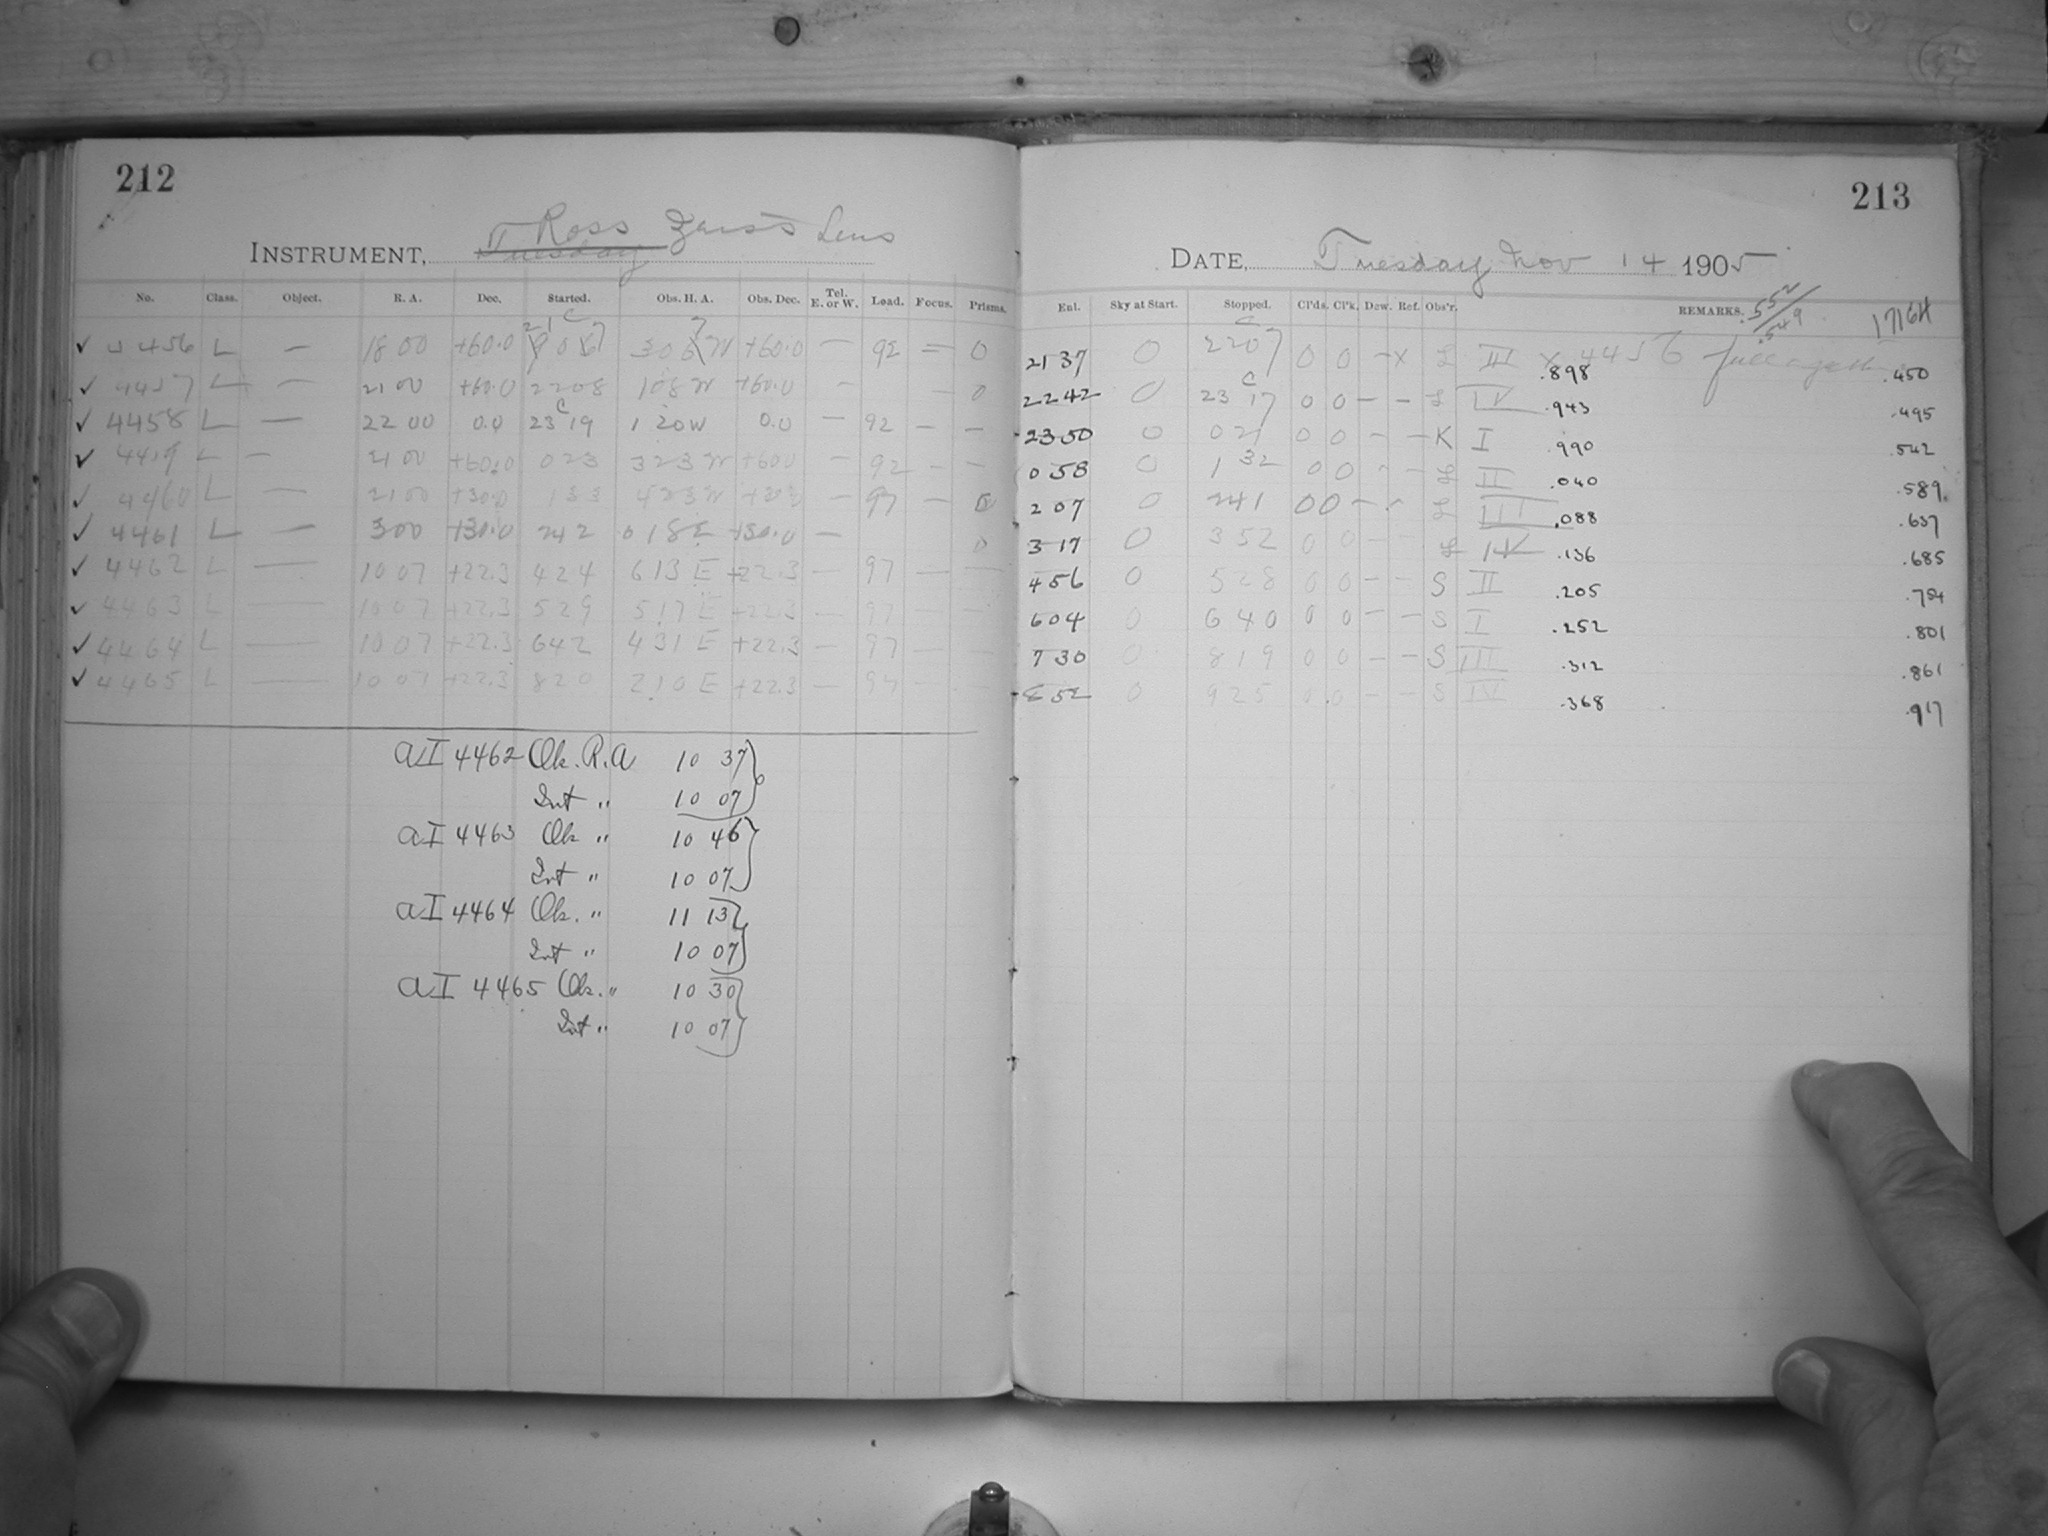 212
INSTRUMENT, Tuesday Ross Zeiss Lens
No. Class. Object. R. A. Dec. Started. Obs. H. A. Obs. Dec. Tel. E. or W. Load. Focus. Prisms.
✓ 4456 L — 18 00 +60.0 +60.0 — 92 — 0
✓ 4457 L — 21 00 +60.0 22 08 1 08 W +60.0 — — 0
✓ 4458 L — 22 00 0.0 23 19 1 20 W 0.0 — 92 — —
✓ 4459 L — 21 00 +60.0 0 23 3 23 W +60.0 — 92 — —
✓ 4460 L — 21 00 +30.0 1 33 4 23 W +30.0 — 97 — 0
✓ 4461 L — 3 00 +30.0 2 42 0 18 E +30.0 — 0
✓ 4462 L — 10 07 +22.3 4 24 6 13 E +22.3 — 97 — —
✓ 4463 L — 10 07 +22.3 5 29 5 17 E +22.3 — 97 — —
✓ 4464 L — 10 07 +22.3 6 42 4 31 E +22.3 — 97 — —
✓ 4465 L — 10 07 +22.3 8 20 2 10 E +22.3 — 97 — —
aI 4462 Ob. R.A 10 37
Int " 10 07
aI 4463 Ob " 10 46
Int " 10 07
aI 4464 Ob. " 11 13
Int " 10 07
aI 4465 Ob. " 10 30
Int " 10 07
213
DATE, Tuesday Nov 14 1905
Exl. Sky at Start. Stopped. Cl'ds. Cl'k. Dew. Ref. Obs'r. REMARKS. 552/549 1716H
21 37 0 22 07 0 0 — x L III x 4456 .898 .450
22 42 0 23 17 0 0 — — L IV .943 .495
23 50 0 0 21 0 0 — — K I .990 .542
0 58 0 1 32 0 0 — — L II .040 .589
2 07 0 2 41 0 0 — — L III .088 .637
3 17 0 3 52 0 0 — — L IV .136 .685
4 56 0 5 28 0 0 — — S II .205 .754
6 04 0 6 40 0 0 — — S I .252 .801
7 30 0 8 19 0 0 — — S III .312 .861
8 52 0 9 25 0 0 — — S IV .368 .917